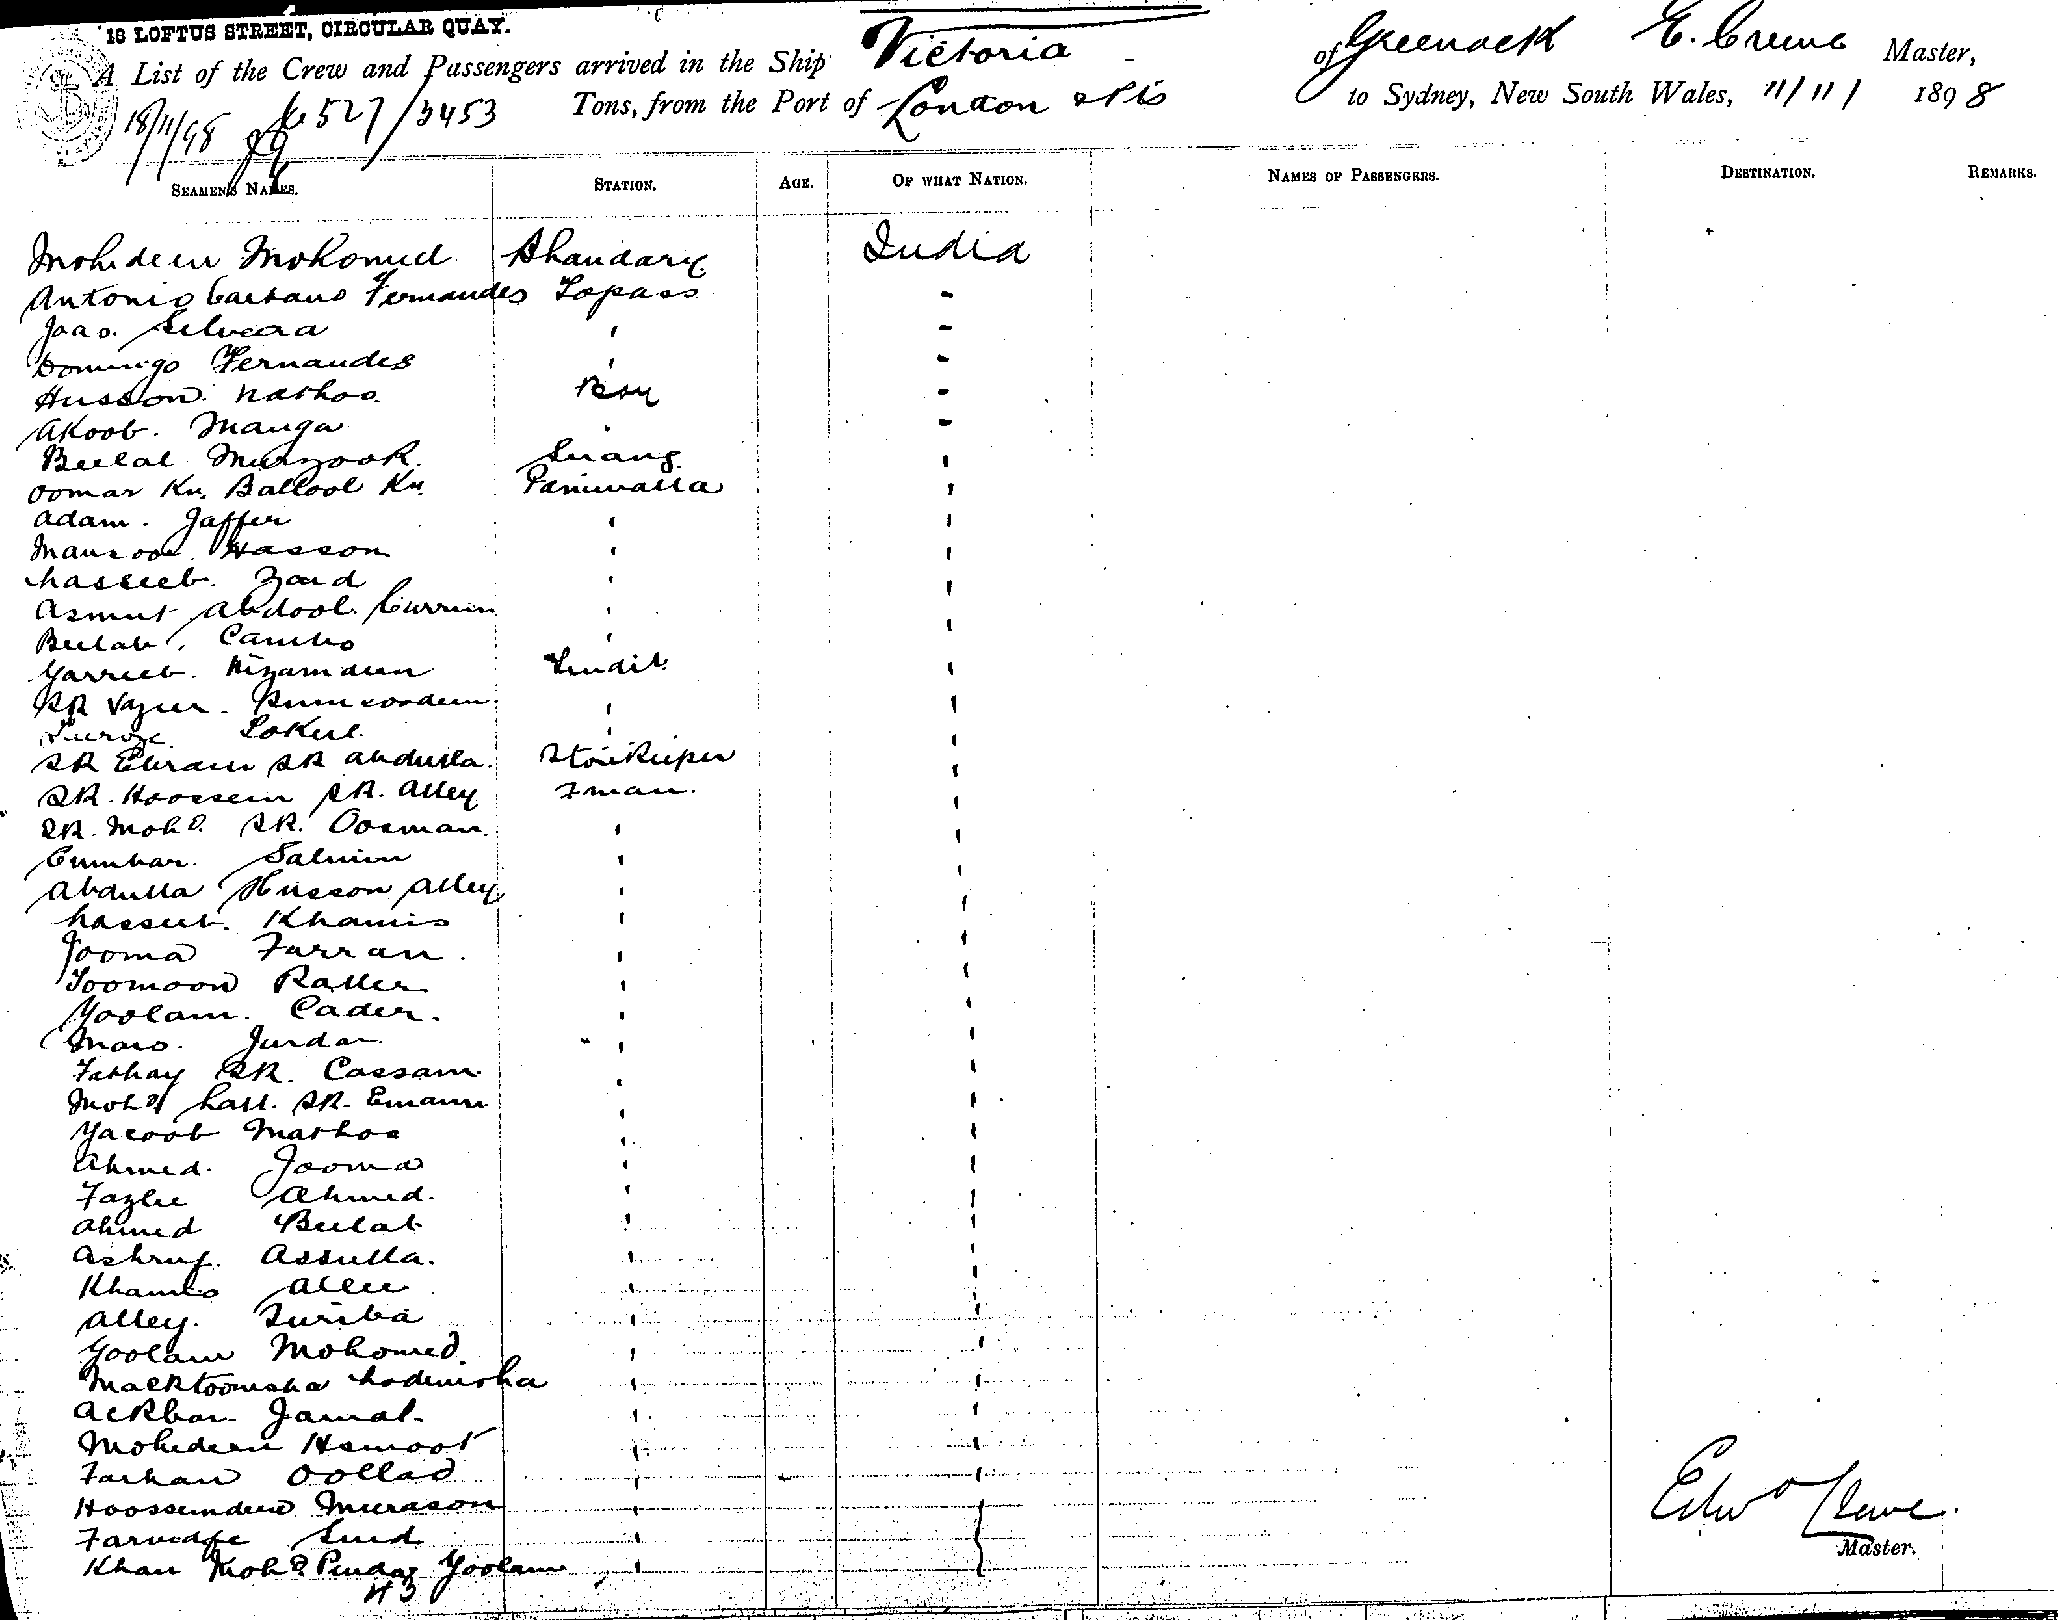 18 LOFTUS STREET, CIRCULAR QUAY.
A List of the Crew and Passengers arrived in the Ship Victoria of Greenock E. Crewe Master,
18/11/98 6527/3453 Tons, from the Port of London & Pts to Sydney, New South Wales, 11/11/ 1898
SEAMEN'S NAMES. STATION. AGE. OF WHAT NATION. NAMES OF PASSENGERS. DESTINATION. REMARKS.
Mohideen Mohomed Bhandary India
Antonio Caetano Fernandes Topass -
Joao. Silveira " -
Domingo Fernandes " -
Husson Nathoo Boy -
Akoob. Manga " -
Beelal Murzook Srang "
Oomar Kn. Ballool Kn. Paniwalla "
Adam. Jaffer " "
Hasson " "
Nasseeb. Zaid " "
Asmut Abdool Currim " "
Beelal, Cambo " "
Garreeb. Nizamdeen Tindil "
SK Vazeer. " "
" "
SK Ebram SK Abdulla. Storekeeper "
SK. Hoossein SK. Alley Fman. "
SK. Mohd. SK. Oosman. " "
Cumbar. Salmin " "
Abdulla Husson Alley " "
Nasseeb. Khamis " "
Jooma Farran. " "
Toomoon " "
Goolam. Cader. " "
" "
Fathay SK. Cassam " "
Mohd SK. Emam " "
Yacoob " "
Ahmed. Jooma " "
Fazlee Ahmed. " "
Ahmed Beelal " "
Ashruf. Assulla. " "
Khamis Allee " "
Alley. " "
Goolam Mohomed. " "
" "
Ackbar Jamal. " "
Mohideen " "
Farhan " "
Hoosseindeen " "
" "
Khan Mohd Goolam " "
43
Edwd Crewe.
Master.